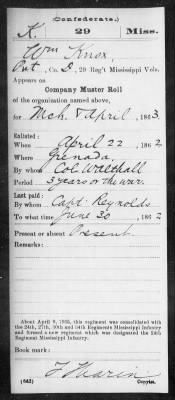 (Confederate.)
K. 29 Miss.
Wm Knox,
Pvt, Co. D, 29 Reg't Mississippi Vols.
Appears on
Company Muster Roll
of the organization named above,
for Mch & April, 1863.
Enlisted:
When April 22, 1862
Where Grenada,
By whom Col Walthall
Period 3 years or the war.
Last paid:
By whom Capt. Reynolds
To what time June 30, 1862
Present or absent Present
Remarks:
About April 9, 1865, this regiment was consolidated with
the 24th, 27th, 30th and 34th Regiments Mississippi Infantry
and formed a new regiment which was designated the 24th
Regiment Mississippi Infantry.
Book mark:
(642) Copyist.